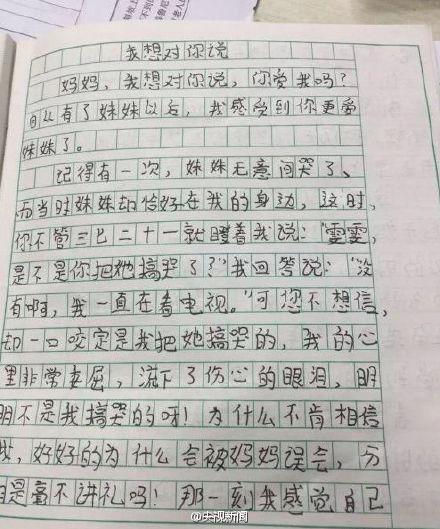 我想对你说
妈妈，我想对你说，你爱我吗？
自从有了妹妹以后，我感受到你更爱
妹妹了。
记得有一次，妹妹无意间哭了、
而当时妹妹却恰好在我的身边，这时，
你不管三七二十一就瞪着我说：“雯雯，
是不是你把她搞哭了？”我回答说：“没
有啊，我一直在看电视。”可您不想信，
却一口咬定是我把她搞哭的，我的心
里非常委屈，流下了伤心的眼泪，明
明不是我搞哭的呀！为什么不肯相信
我，好好的为什么会被妈妈误会，分
明是毫不讲礼吗！那一刻我感觉自己
@央视新闻